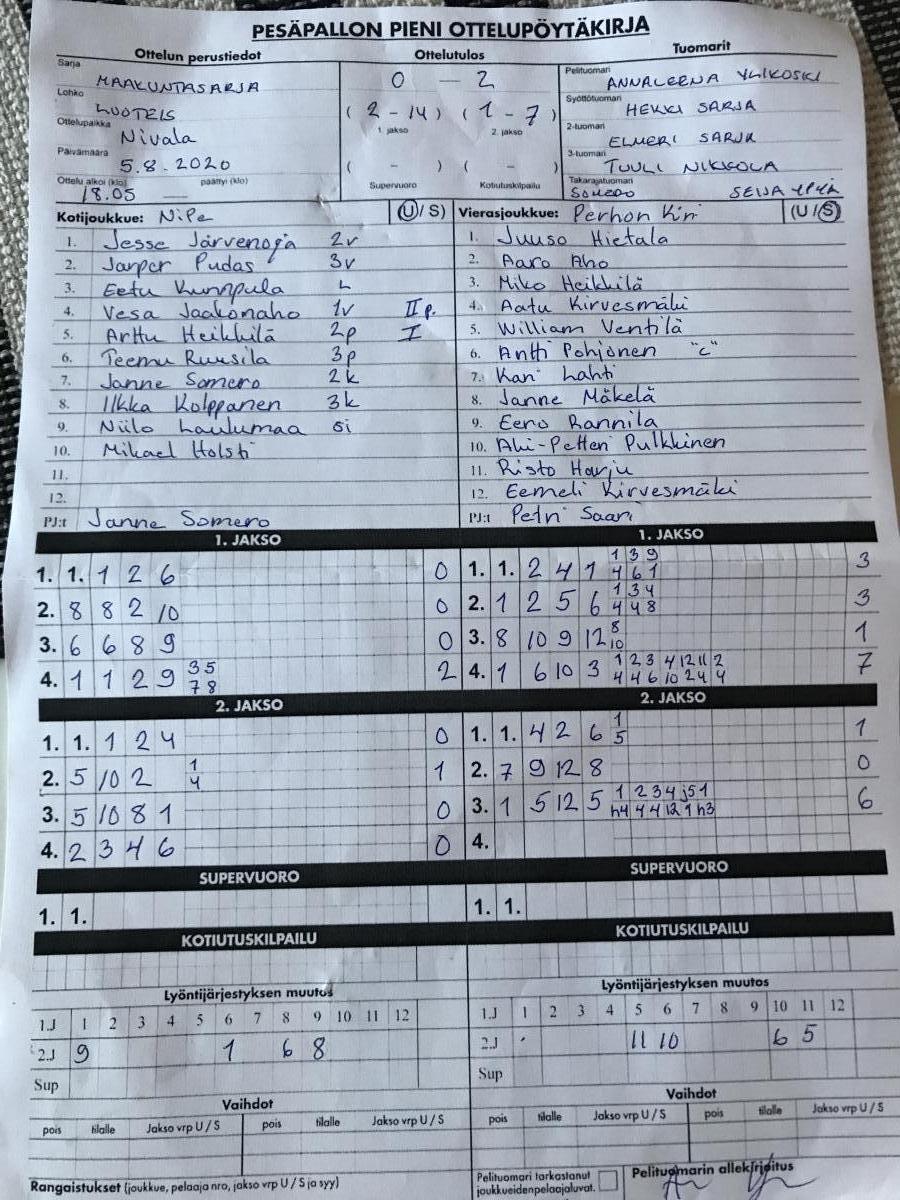 PESÄPALLON PIENI OTTELUPÖYTÄKIRJA
Ottelun perustiedot Ottelutulos Tuomarit
Sarja MAAKUNTASARJA
Lohko
Ottelupaikka Nivala
Päivämäärä 5.8.2020
Ottelu alkoi (klo) 18.05 päättyi (klo) —
0 — 2
(2-14) (1-7)
1. jakso 2. jakso
( - ) ( - )
Supervuoro Kotiutuskilpailu
Pelituomari ANNALEENA YLIKOSKI
Syöttötuomari HEKKI SARJA
2-tuomari ELMERI SARJA
3-tuomari TUULI NIKKOLA
Takarajatuomari SOMERO SEIJA
Kotijoukkue: NiPe (U/S) Vierasjoukkue: Perhon Kiri (U/S)
1. Jesse Järvenoja 2v
2. Jasper Pudas 3v
3. Eetu Kumpula L
4. Vesa Jaakonaho 1v II p.
5. Arttu Heikkilä 2p I
6. Teemu Ruusila 3p
7. Janne Somero 2k
8. Ilkka Kolppanen 3k
9. Niilo Laulumaa si
10. Mikael Holsti
11.
12.
PJ:t Janne Somero
1. Juuso Hietala
2. Aaro Aho
3. Miko Heikkilä
4. Aatu Kirvesmäki
5. William Ventilä
6. Antti Pohjonen "c"
7. Kari Lahti
8. Janne Mäkelä
9. Eero Rannila
10. Ali-Petteri Pulkkinen
11. Risto Harju
12. Eemeli Kirvesmäki
PJ:t Petri Saari
1. JAKSO 1. JAKSO
1. 1. 1 2 6 0
2. 8 8 2 10 0
3. 6 6 8 9 0
3 5
4. 1 1 2 9 2
7 8
1 3 9
1. 1. 2 4 1 3
4 6 1
1 3 4
2. 1 2 5 6 3
4 4 8
8
3. 8 10 9 12 1
10
1 2 3 4 12 11 2
4. 1 6 10 3 7
4 4 6 10 2 4 4
2. JAKSO 2. JAKSO
1. 1. 1 2 4 0
1
2. 5 10 2 1
4
3. 5 10 8 1 0
4. 2 3 4 6 0
1
1. 1. 4 2 6 1
5
2. 7 9 12 8 0
1 2 3 4 j5 1
3. 1 5 12 5 6
h4 4 4 12 1 h3
4.
SUPERVUORO SUPERVUORO
1. 1. 1. 1.
KOTIUTUSKILPAILU KOTIUTUSKILPAILU
Lyöntijärjestyksen muutos Lyöntijärjestyksen muutos
1.J 1 2 3 4 5 6 7 8 9 10 11 12
2.J 9 1 6 8
Sup
1.J 1 2 3 4 5 6 7 8 9 10 11 12
2.J 11 10 6 5
Sup
Vaihdot Vaihdot
pois tilalle Jakso vrp U / S pois tilalle Jakso vrp U / S
pois tilalle Jakso vrp U / S pois tilalle Jakso vrp U / S
Rangaistukset (joukkue, pelaaja nro, jakso vrp U / S ja syy)
Pelituomari tarkastanut
joukkueidenpelaajaluvat.
Pelituomarin allekirjoitus